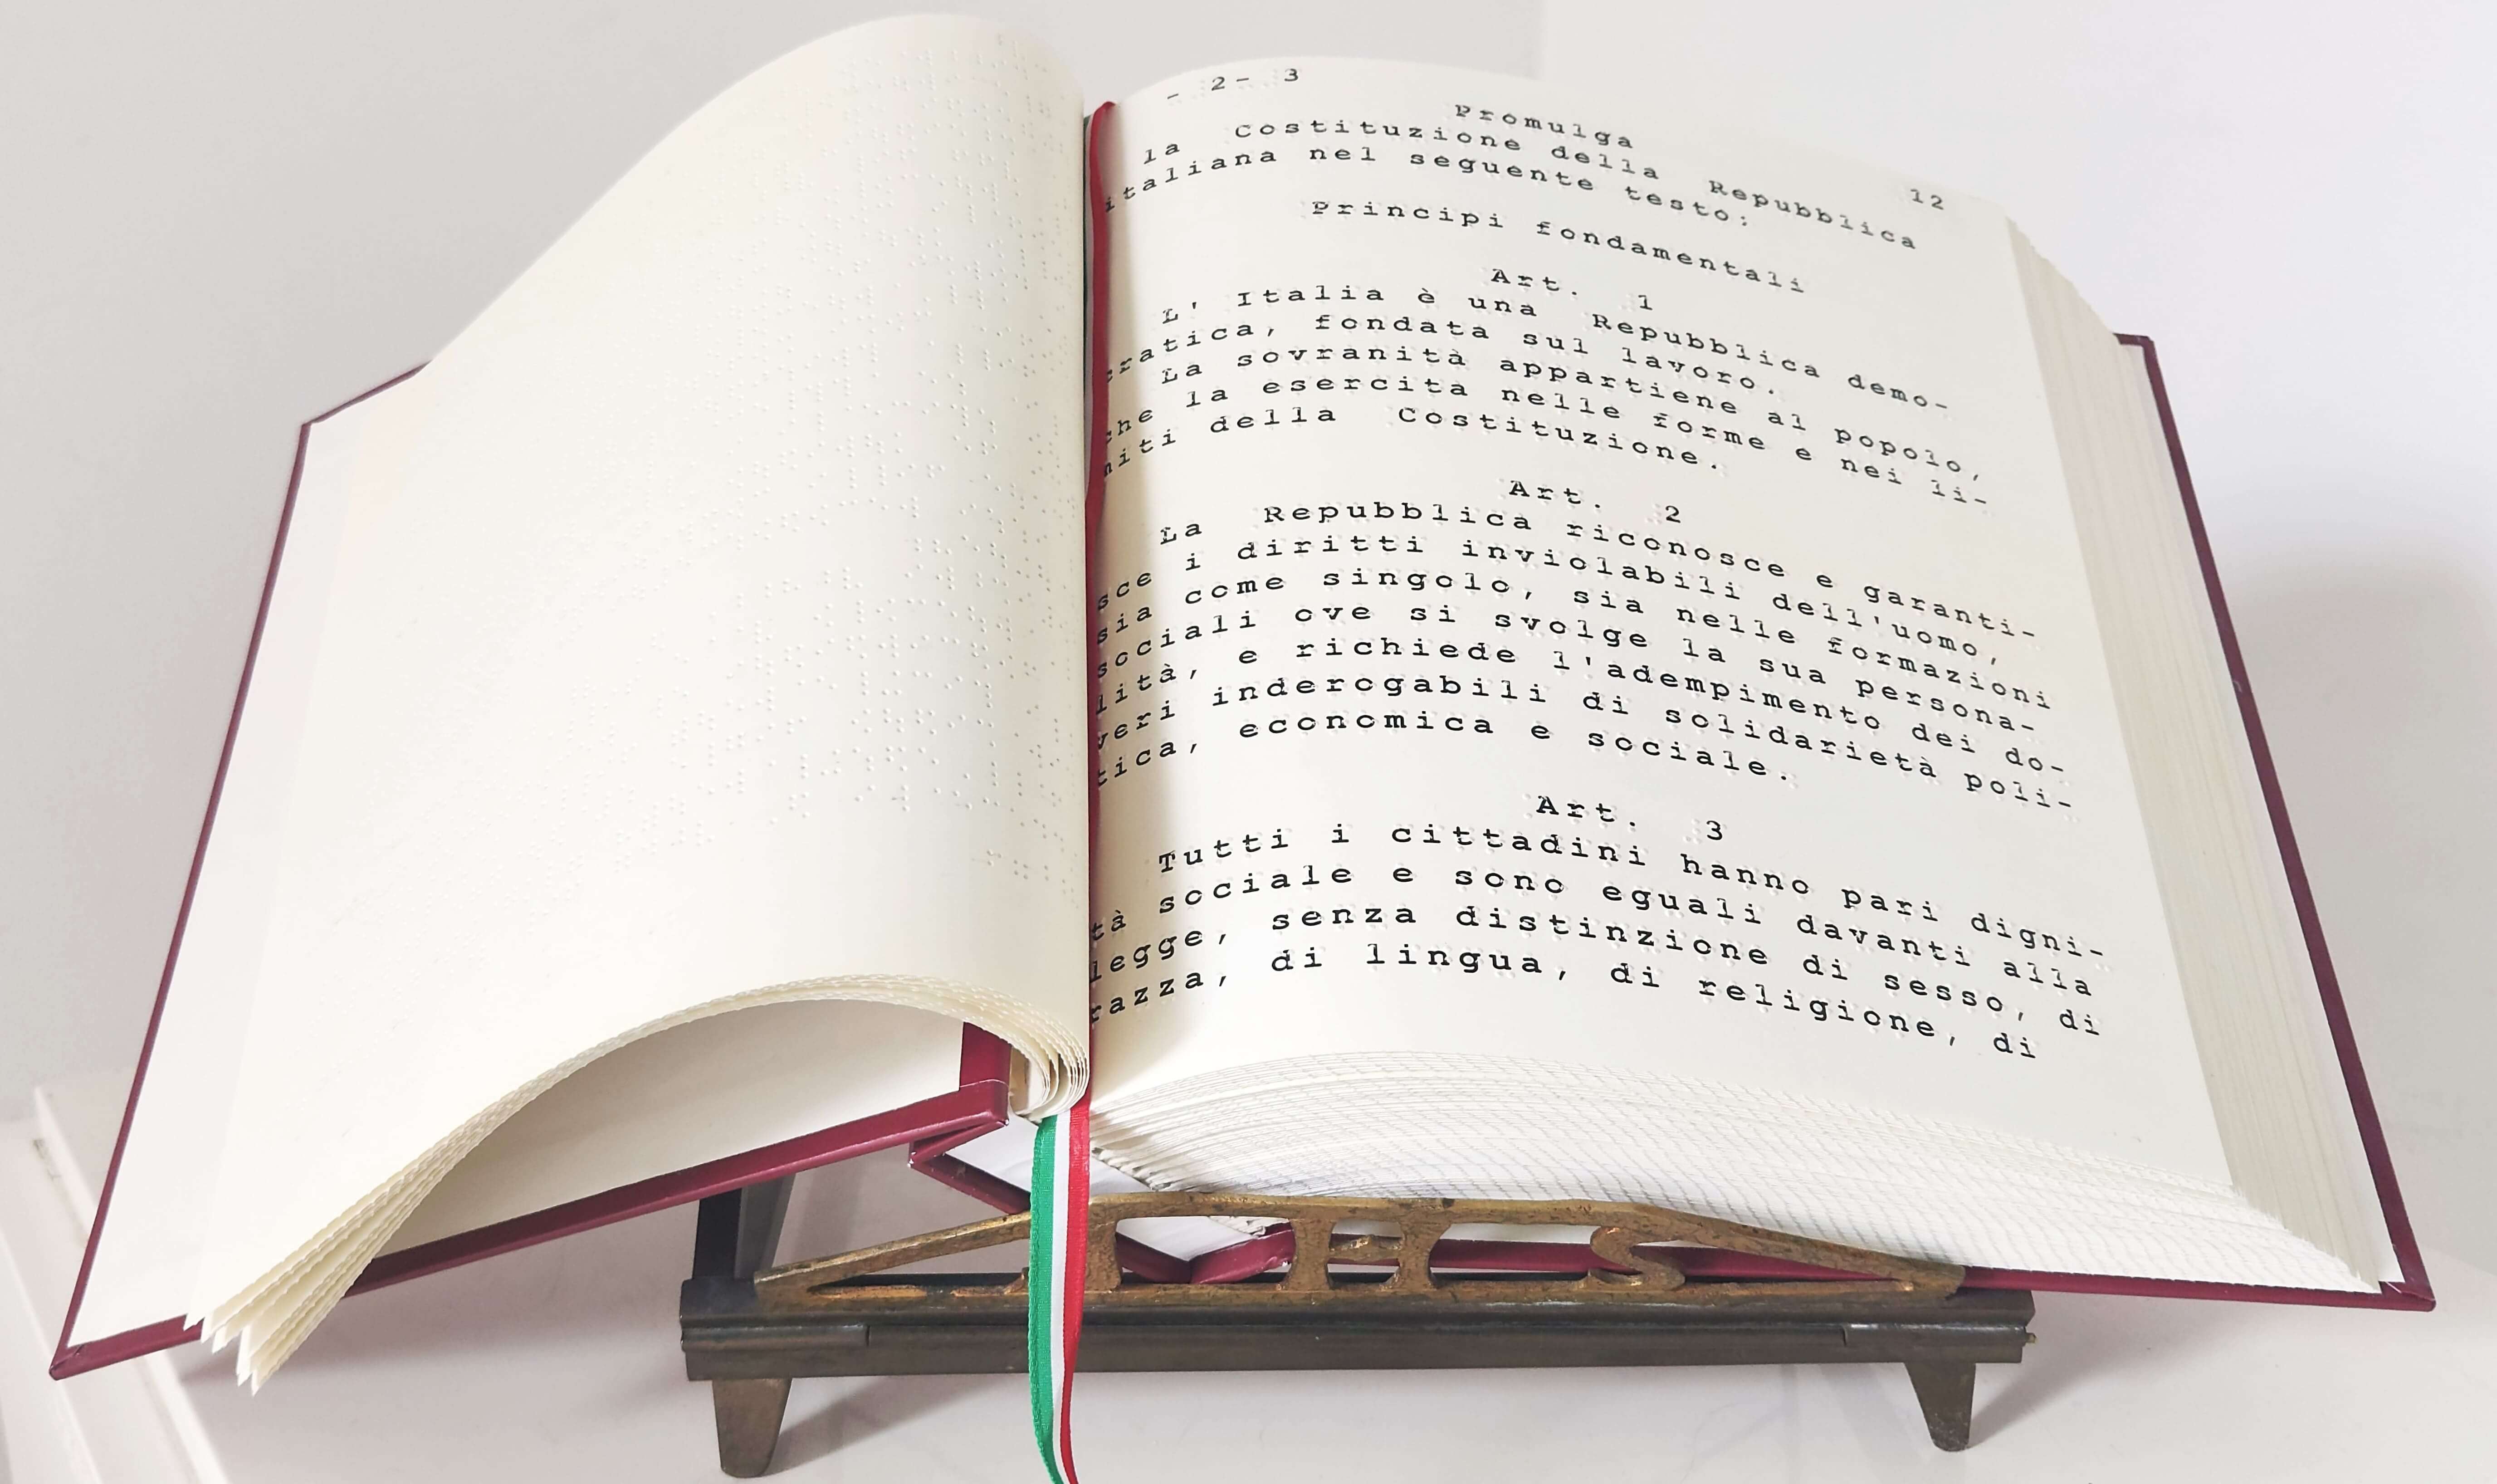 - 2- 3
12
Promulga
la Costituzione della Repubblica
italiana nel seguente testo:
Principi fondamentali
Art. 1
L' Italia è una Repubblica demo-
cratica, fondata sul lavoro.
La sovranità appartiene al popolo,
che la esercita nelle forme e nei li-
miti della Costituzione.
Art. 2
La Repubblica riconosce e garanti-
sce i diritti inviolabili dell'uomo,
sia come singolo, sia nelle formazioni
sociali ove si svolge la sua persona-
lità, e richiede l'adempimento dei do-
veri inderogabili di solidarietà poli-
tica, economica e sociale.
Art. 3
Tutti i cittadini hanno pari digni-
tà sociale e sono eguali davanti alla
legge, senza distinzione di sesso, di
razza, di lingua, di religione, di
IHS